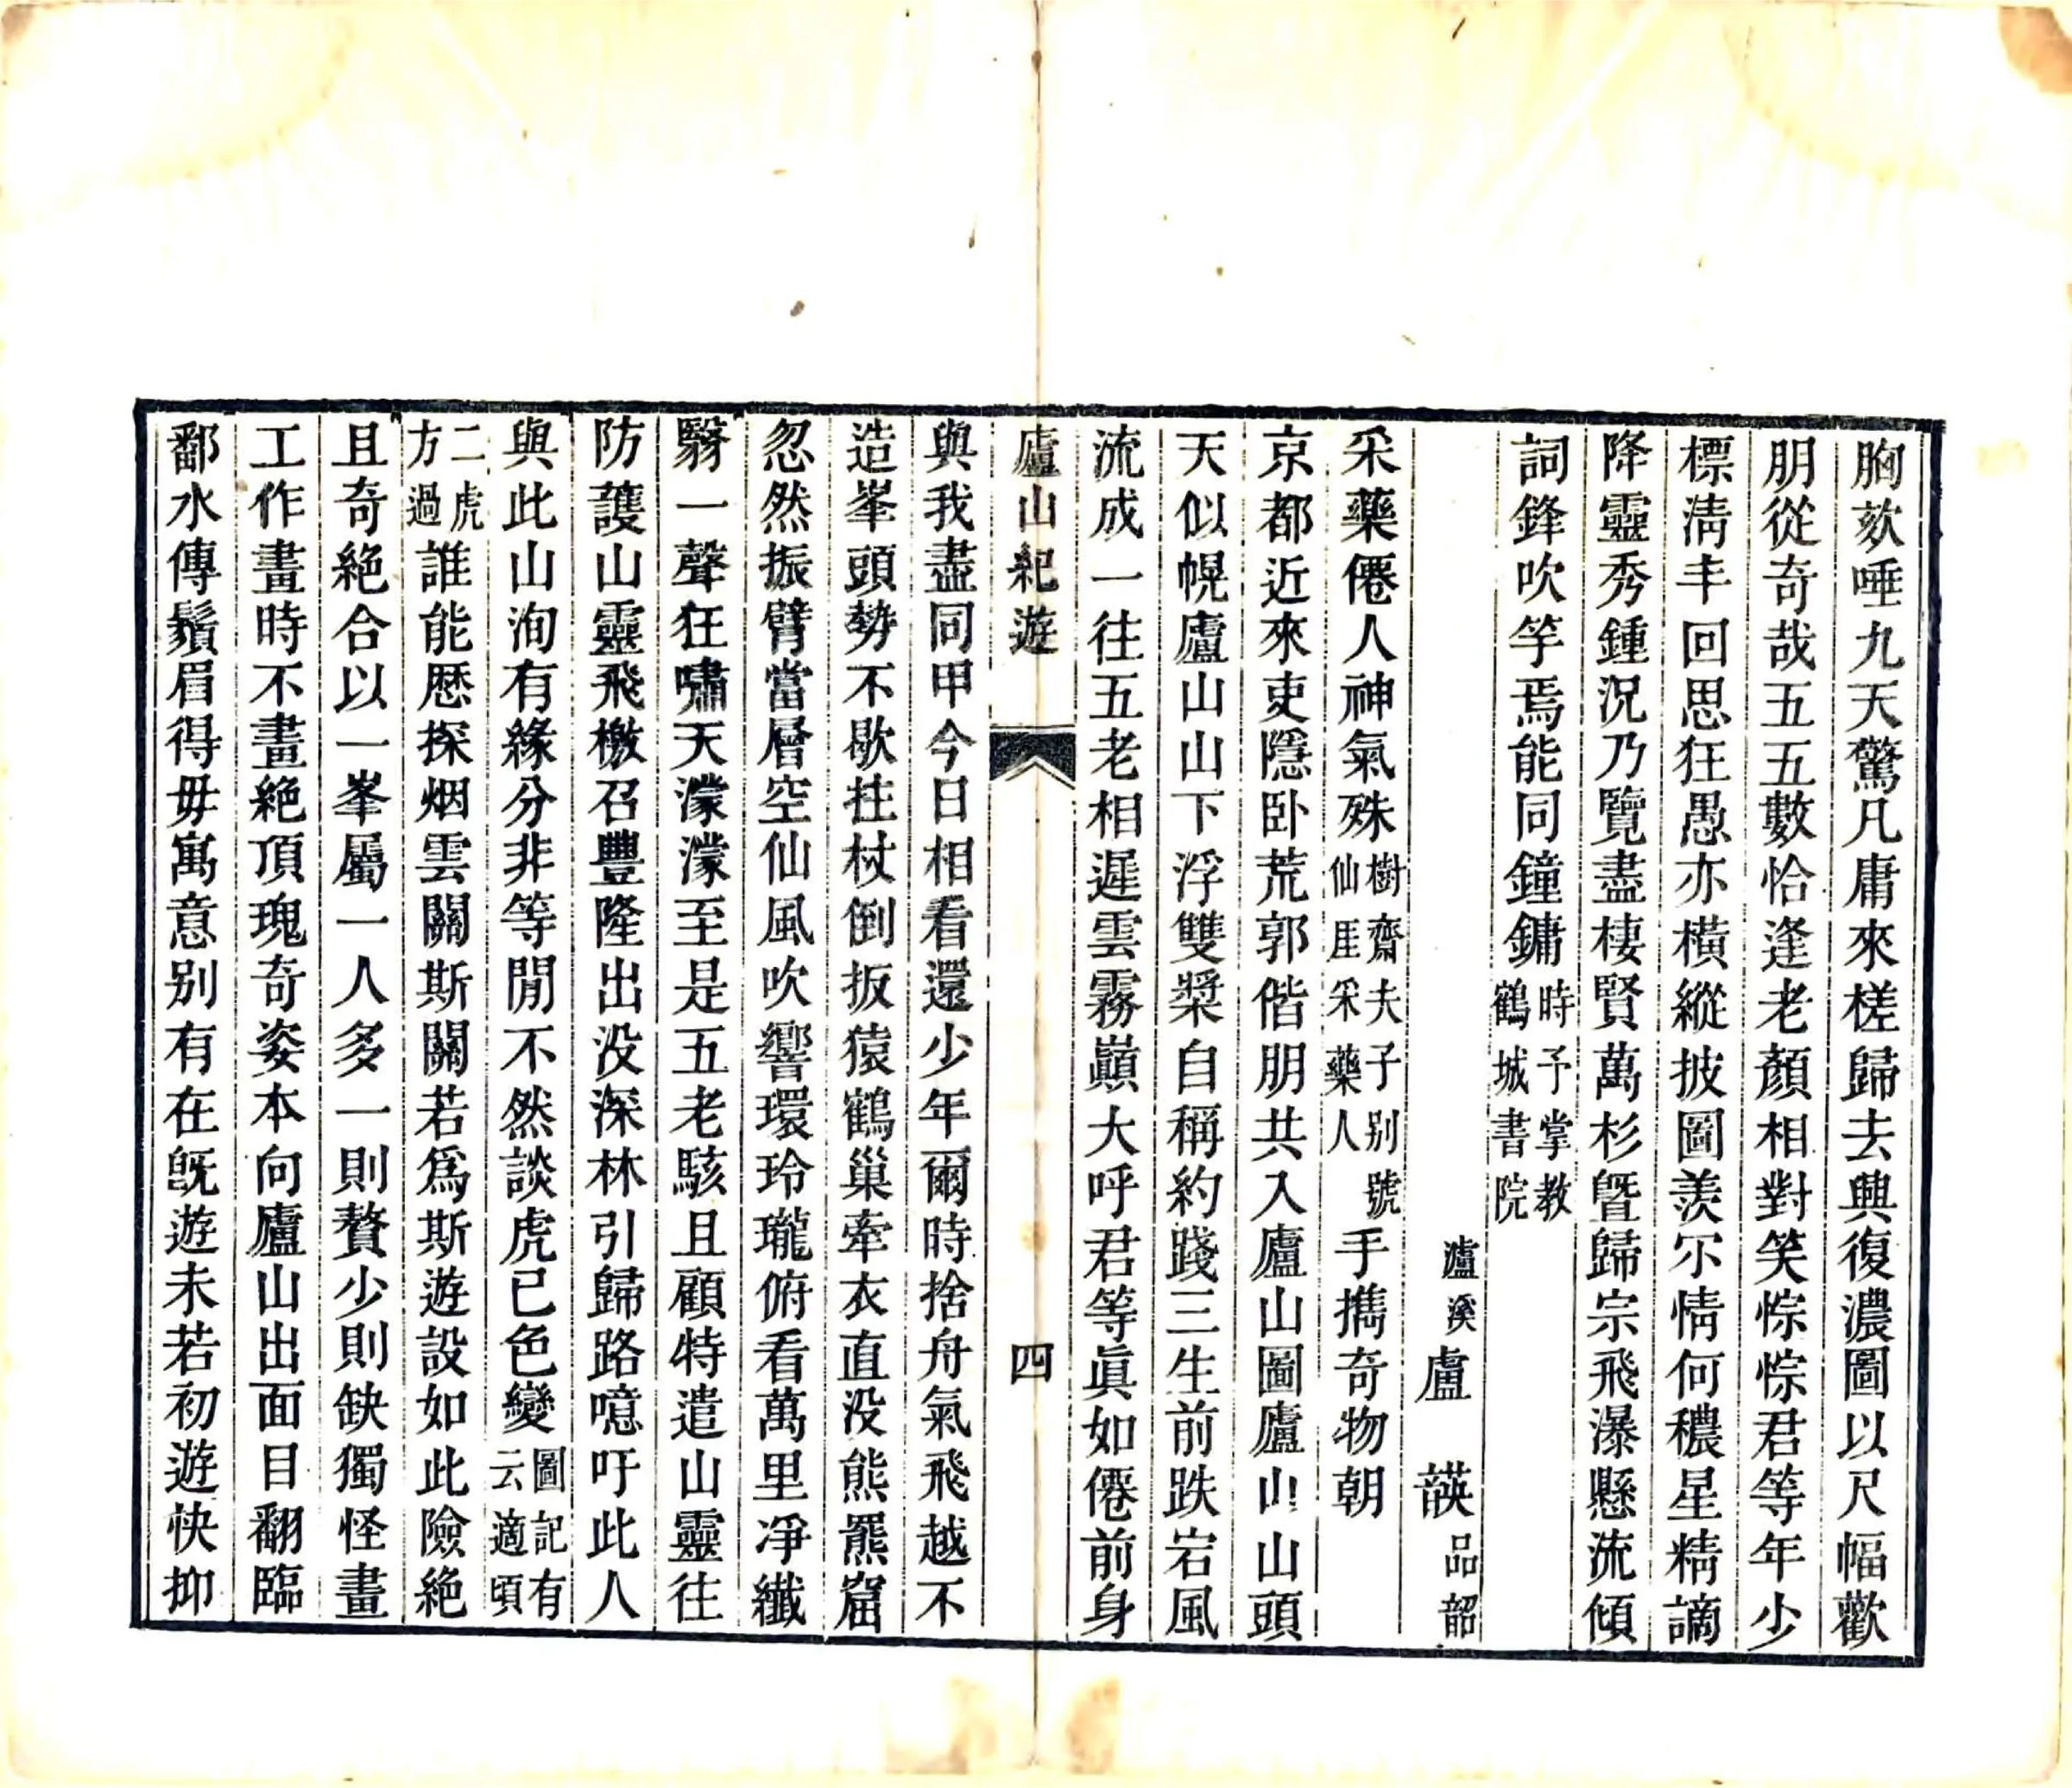 胸欬唾九天驚凡庸來槎歸去興復濃圖以尺幅歡
朋從奇哉五五數恰逢老顏相對笑悰悰君等年少
標淸丰回思狂愚亦橫縱披圖羨尔情何穠星精謫
降靈秀鍾況乃覽盡棲賢萬杉曁歸宗飛瀑懸流傾
詞鋒吹竽焉能同鐘鏞時予掌教鶴城書院
瀘溪盧 䕦品韶
采藥僊人神氣殊樹齋夫子別號仙厓采藥人手擕奇物朝
京都近來吏隱卧荒郭偕朋共入廬山圖廬山山頭
天似幌廬山山下浮雙槳自稱約踐三生前跌宕風
流成一往五老相遲雲霧巔大呼君等眞如僊前身
廬山紀遊
四
與我盡同甲今日相看還少年爾時捨舟氣飛越不
造峯頭勢不歇拄杖倒扳猿鶴巢牽衣直没熊羆窟
忽然振臂當層空仙風吹響環玲瓏俯看萬里凈纖
翳一聲狂嘯天濛濛至是五老駭且顧特遣山靈往
防護山靈飛檄召豐隆出没深林引歸路噫吁此人
與此山洵有緣分非等閒不然談虎已色變圖記有云適頃
二虎方過誰能歷探烟雲關斯關若爲斯遊設如此險絶
且奇絶合以一峯屬一人多一則贅少則缺獨怪畫
工作畫時不畫絶頂瑰奇姿本向廬山出面目翻臨
鄱水傳鬚眉得毋寓意别有在旣遊未若初遊快抑